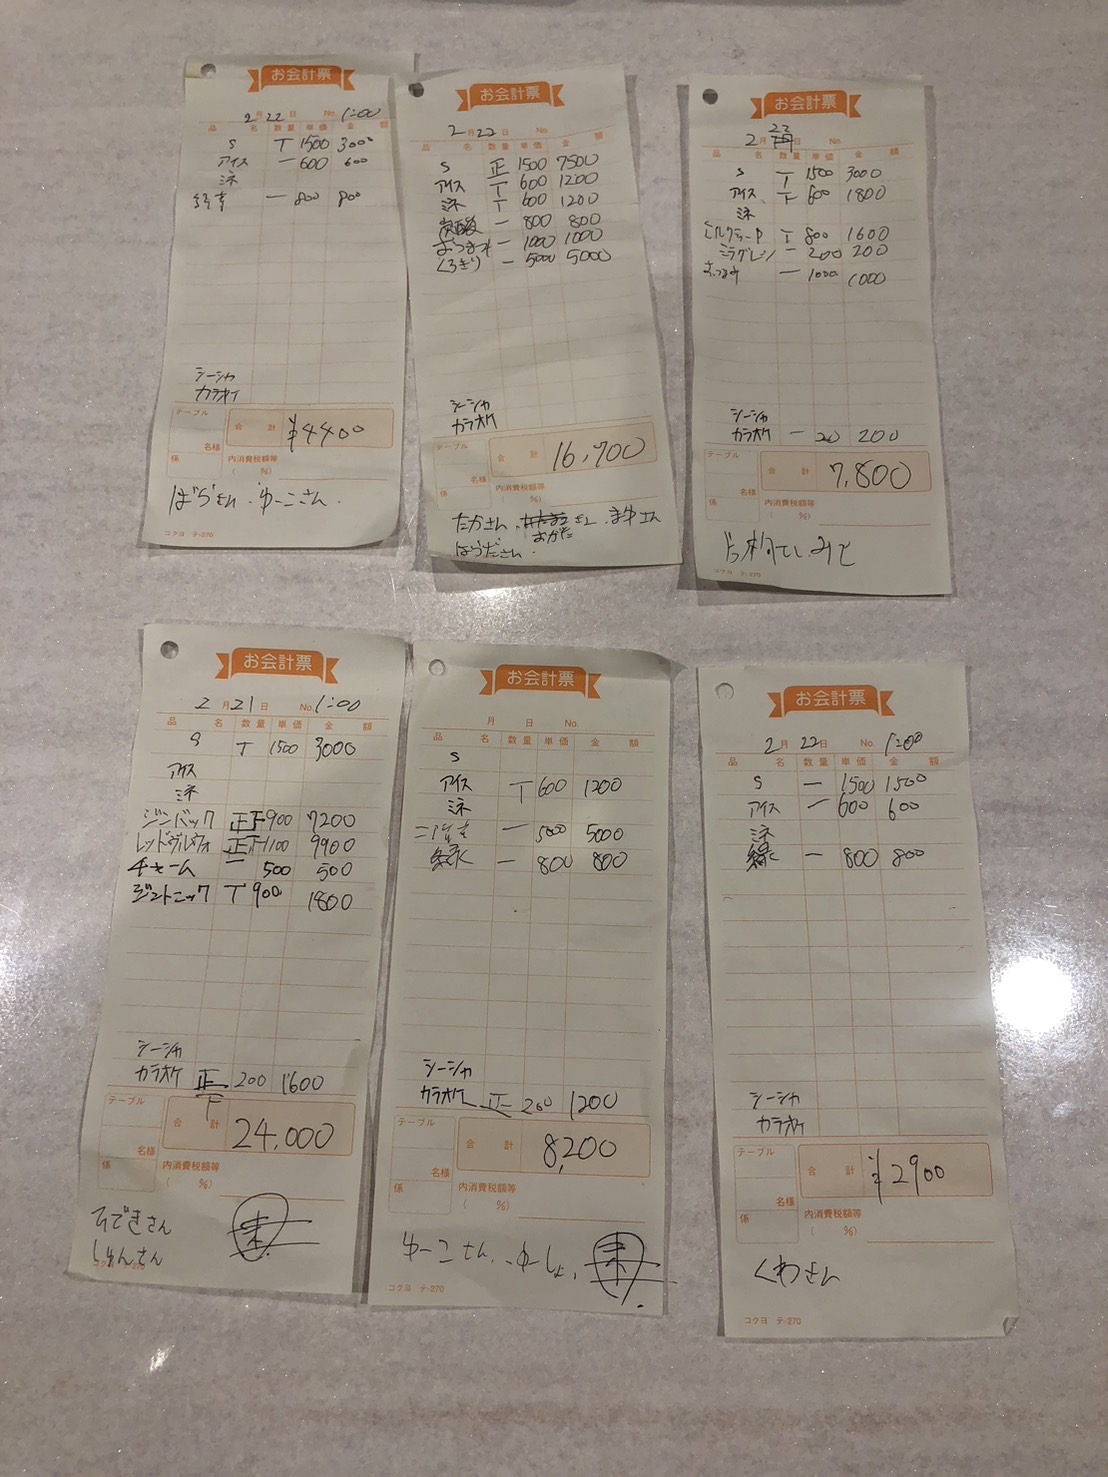 お会計票
2月22日 No. 1:00
品名 数量 単価 金額
S T 1500 3000
アイス 一 600 600
ミネ
一 800 800
シーシャ
カラオケ
テーブル
名様
係
合計 ¥4400
内消費税額等
( %)
ばらさん、ゆーこさん.
コクヨ テ-270
お会計票
2月22日 No.
品名 数量 単価 金額
S 正 1500 7500
アイス T 600 1200
ミネ T 600 1200
炭酸 一 800 800
おつまみ 一 1000 1000
くろきり 一 5000 5000
シーシャ
カラオケ
テーブル
名様
係
合計 16,700
内消費税額等
( %)
たかさん、
おがた
さん、まゆさん
ほうださん.
コクヨ テ-270
お会計票
2月22
品名 数量 単価 金額
S T 1500 3000
アイス 下 600 1800
ミネ
T 800 1600
ミラグレーン 一 200 200
おつまみ 一 1000 1000
シーシャ
カラオケ 一 200 200
テーブル
名様
係
合計 7,800
内消費税額等
( %)
コクヨ テ-270
お会計票
2月21日 No. 1:00
品名 数量 単価 金額
S T 1500 3000
アイス
ミネ
ジンバック 正下 900 7200
レッドヴルウォ 正 1100 9900
チャーム 一 500 500
ジントニック T 900 1800
シーシャ
カラオケ 正下 200 1600
テーブル
名様
係
合計 24,000
内消費税額等
( %)
ひできさん
しゅんさん
未
コクヨ テ-270
お会計票
月 日 No.
品名 数量 単価 金額
S
アイス T 600 1200
ミネ
二階堂 一 5000 5000
緑 一 800 800
シーシャ
カラオケ 正一 200 1200
テーブル
名様
係
合計 8,200
内消費税額等
( %)
ゆーこさん、ゆーしょ、
未
コクヨ テ-270
お会計票
2月22日 No. 1:00
品名 数量 単価 金額
S 一 1500 1500
アイス 一 600 600
ミネ
緑 一 800 800
シーシャ
カラオケ
テーブル
名様
係
合計 ¥2900
内消費税額等
( %)
くわさん
コクヨ テ-270